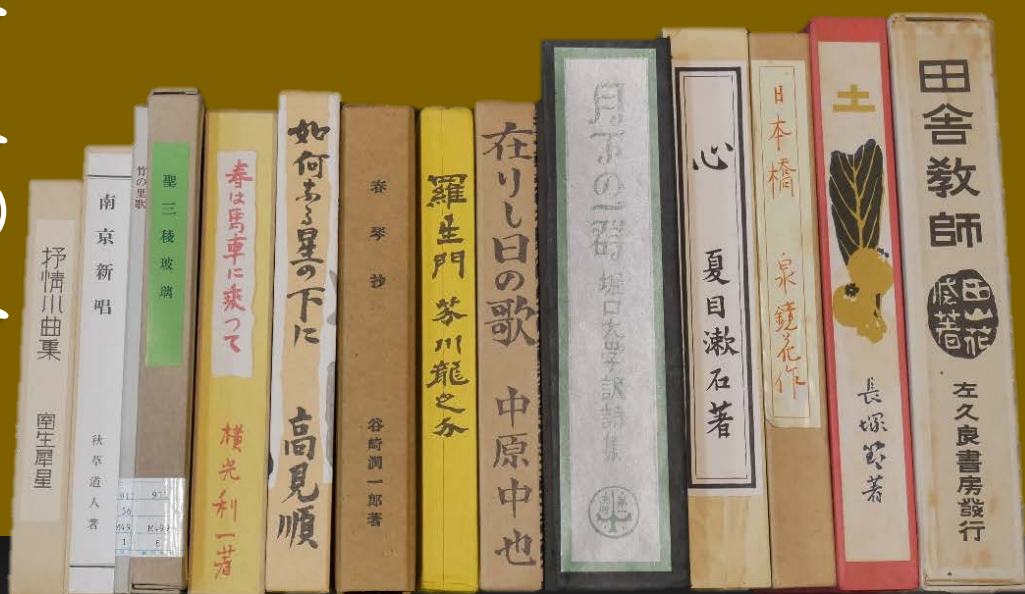 抒情小曲集 室生犀星
南京新唱 秋草道人著
竹の里歌
聖三稜玻璃
春は馬車に乗つて 横光利一著
如何なる星の下に 高見順
春琴抄 谷崎潤一郎著
羅生門 芥川龍之介
在りし日の歌 中原中也
月下の一群 堀口大學訳詩集
心 夏目漱石著
日本橋 泉鏡花作
土 長塚節著
田舎教師 田山花袋著 左久良書房發行